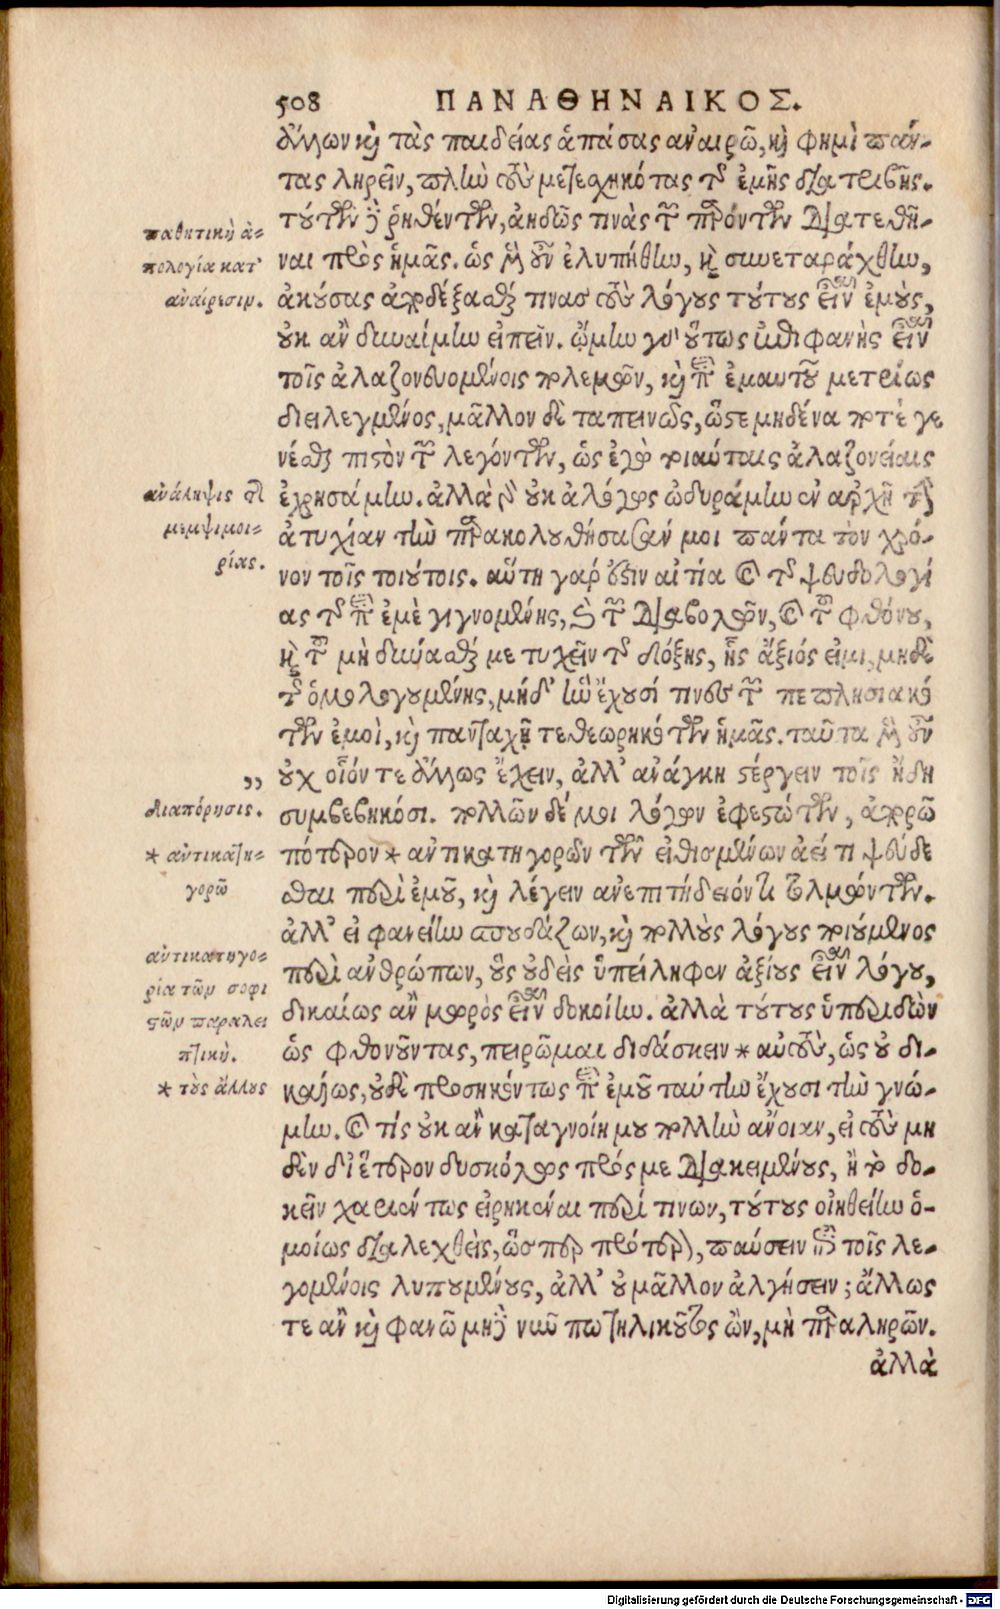 508 ΠΑΝΑΘΗΝΑΙΚΟΣ.
ἄλλων καὶ τὰς παιδείας ἁπάσας ἀναιρῶ, καὶ φημὶ πάν-
τας ληρεῖν, πλὴν τοὺς μετεσχηκότας τῆς ἐμῆς διατριβῆς.
τούτων δὲ ῥηθέντων, ἀηδῶς τινὰς τῶν παρόντων διατεθῆ-
ναι πρὸς ἡμᾶς. ὡς μὲν οὖν ἐλυπήθην, καὶ συνεταράχθην,
ἀκούσας ἀποδέξασθαί τινας τοὺς λόγους τούτους εἶναι ἐμοὺς,
οὐκ ἂν δυναίμην εἰπεῖν. ᾤμην γὰρ οὕτως ἐπιφανὴς εἶναι
τοῖς ἀλαζονευομένοις πολεμῶν, καὶ περὶ ἐμαυτοῦ μετρίως
διειλεγμένος, μᾶλλον δὲ ταπεινῶς, ὥστε μηδένα ποτὲ γε
νέσθαι πιστὸν τῶν λεγόντων, ὡς ἐγὼ τοιαύταις ἀλαζονείαις
ἐχρησάμην. ἀλλὰ γὰρ οὐκ ἀλόγως ὠδυράμην ἐν ἀρχῇ τὴν
ἀτυχίαν τὴν παρακολουθήσασάν μοι πάντα τὸν χρό-
νον τοῖς τοιούτοις. αὕτη γάρ ἐστιν αἰτία καὶ τῆς ψευδολογί
ας τῆς περὶ ἐμὲ γιγνομένης, καὶ τῶν διαβολῶν, καὶ τοῦ φθόνου,
καὶ τοῦ μὴ δύνασθαί με τυχεῖν τῆς δόξης, ἧς ἄξιός εἰμι, μηδὲ
τῆς ὁμολογουμένης, μήδ' ἣν ἔχουσί τινες τῶν πεπλησιακό
των ἐμοὶ, καὶ πανταχῇ τεθεωρηκότων ἡμᾶς. ταῦτα μὲν οὖν
οὐχ οἷόν τε ἄλλως ἔχειν, ἀλλ' ἀνάγκη στέργειν τοῖς ἤδη
συμβεβηκόσι. πολλῶν δέ μοι λόγων ἐφεστώτων, ἀπορῶ
πότερον * ἀντικατηγορῶ τῶν εἰθισμένων ἀεί τι ψεύδε
σθαι περὶ ἐμοῦ, καὶ λέγειν ἀνεπιτήδειόν τι τολμώντων.
ἀλλ' εἰ φανείην σπουδάζων, καὶ πολλοὺς λόγους ποιούμενος
περὶ ἀνθρώπων, οὓς οὐδεὶς ὑπείληφεν ἀξίους εἶναι λόγου,
δικαίως ἂν μωρὸς εἶναι δοκοίην. ἀλλὰ τούτους ὑπεριδὼν
ὡς φθονοῦντας, πειρῶμαι διδάσκειν * αὐτοὺς, ὡς οὐ δι-
καίως, οὐδὲ προσηκόντως περὶ ἐμοῦ ταύτην ἔχουσι τὴν γνώ-
μην. καὶ τίς οὐκ ἂν καταγνοίη μου πολλὴν ἄνοιαν, εἰ τοὺς μη
δὲν δι' ἕτερον δυσκόλως πρός με διακειμένους, ἢ τὸ δο-
κεῖν χαριέντως εἰρηκέναι περί τινων, τούτους οἰηθείην ὁ-
μοίως διαλεχθεὶς, ὥσπερ πρότερον, παύσειν ἐπὶ τοῖς λε-
γομένοις λυπουμένους, ἀλλ' οὐ μᾶλλον ἀλγήσειν; ἄλλως
τε ἂν καὶ φανῶ μηδὲ νῦν πω τηλικοῦτος ὢν, μὴ παραληρῶν.
ἀλλὰ
παθητικὴ ἀ-
πολογία κατ'
ἀναίρεσιν.
ἀνάληψις τῆς
μεμψιμοι-
ρίας.
,,
διαπόρησις.
* ἀντικατη-
γορῶ
ἀντικατηγο-
ρία τῶν σοφι
στῶν παραλει
πτικὴ.
* τοὺς ἄλλους
Digitalisierung gefördert durch die Deutsche Forschungsgemeinschaft - DFG